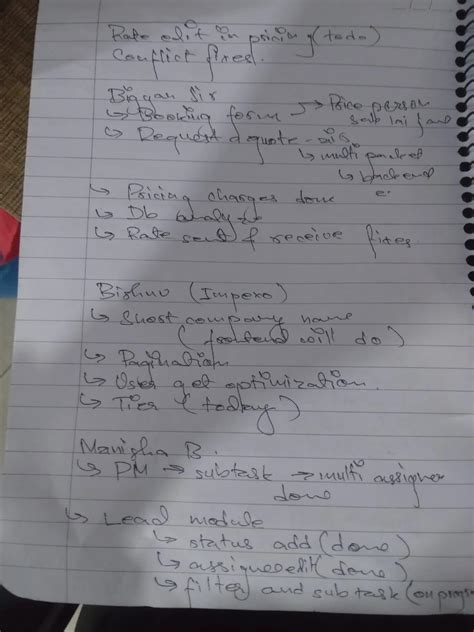 Rate edit in pricing (todo)
Conflict fixes.
Bigyan Sir
↳ Booking form → Price person
↳ Request a quote
↳ multi packet
↳ backend
↳ Pricing changes done
↳ Db analyze
↳ Rate sent & receive fixes.
Bishnu (Impexo)
↳ Short company name
(frontend will do)
↳ Pagination
↳ User get optimization.
↳ Tier (today)
Manisha B.
↳ PM → subtask → multi assignee
done
↳ Lead module
↳ status add (done)
↳ assignee edit (done)
↳ filter and subtask (on progre